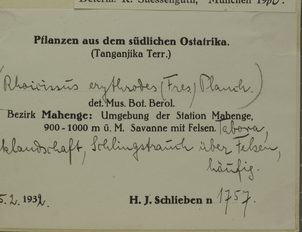 Determ. K. Suessenguth, München 19
Pflanzen aus dem südlichen Ostafrika.
(Tanganjika Terr.)
(Rhoicissus erythrodes (Fres) Planch.)
det. Mus. Bot. Berol.
Bezirk Mahenge: Umgebung der Station Mahenge,
900 - 1000 m ü. M. Savanne mit Felsen. Tabora,
klandschaft, Schlingstrauch über Felsen,
häufig.
5.2. 1932.
H. J. Schlieben n 1757.